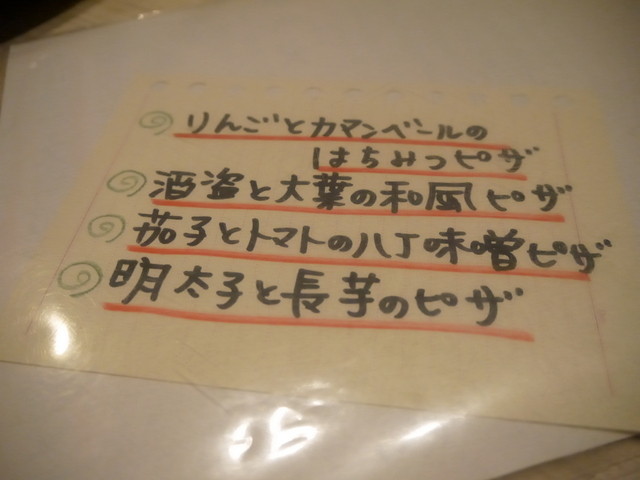 りんごとカマンベールの
はちみつピザ
酒盗と大葉の和風ピザ
茄子とトマトの八丁味噌ピザ
明太子と長芋のピザ